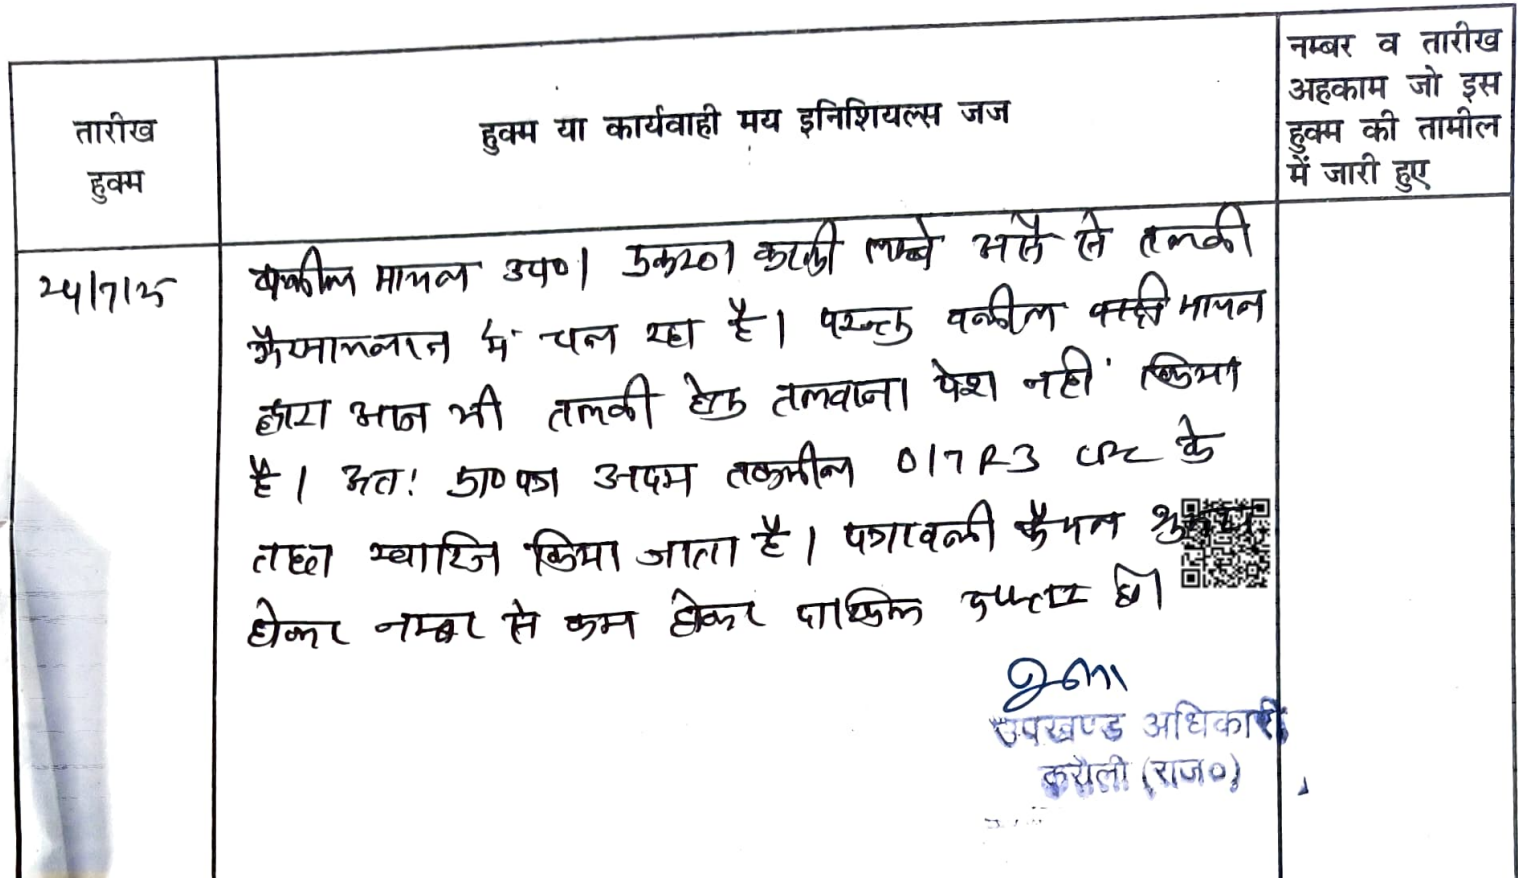 तारीख
हुक्म
हुक्म या कार्यवाही मय इनिशियल्स जज
नम्बर व तारीख
अहकाम जो इस
हुक्म की तामील
में जारी हुए
24/7/25
वकील सायल उप०। प्रकरण काफी लम्बे अर्से से तलबी
में चल रहा है। परन्तु वकील सायल
द्वारा आज भी तलबी हेतु तलवाना पेश नहीं किया
है। अतः प्रा० पत्र अदम तकमील O17R3 CPC के
तहत खारिज किया जाता है। पत्रावली फैसल
होकर नम्बर से कम होकर दाखिल दफ्तर हो।
उपखण्ड अधिकारी
करौली (राज०)